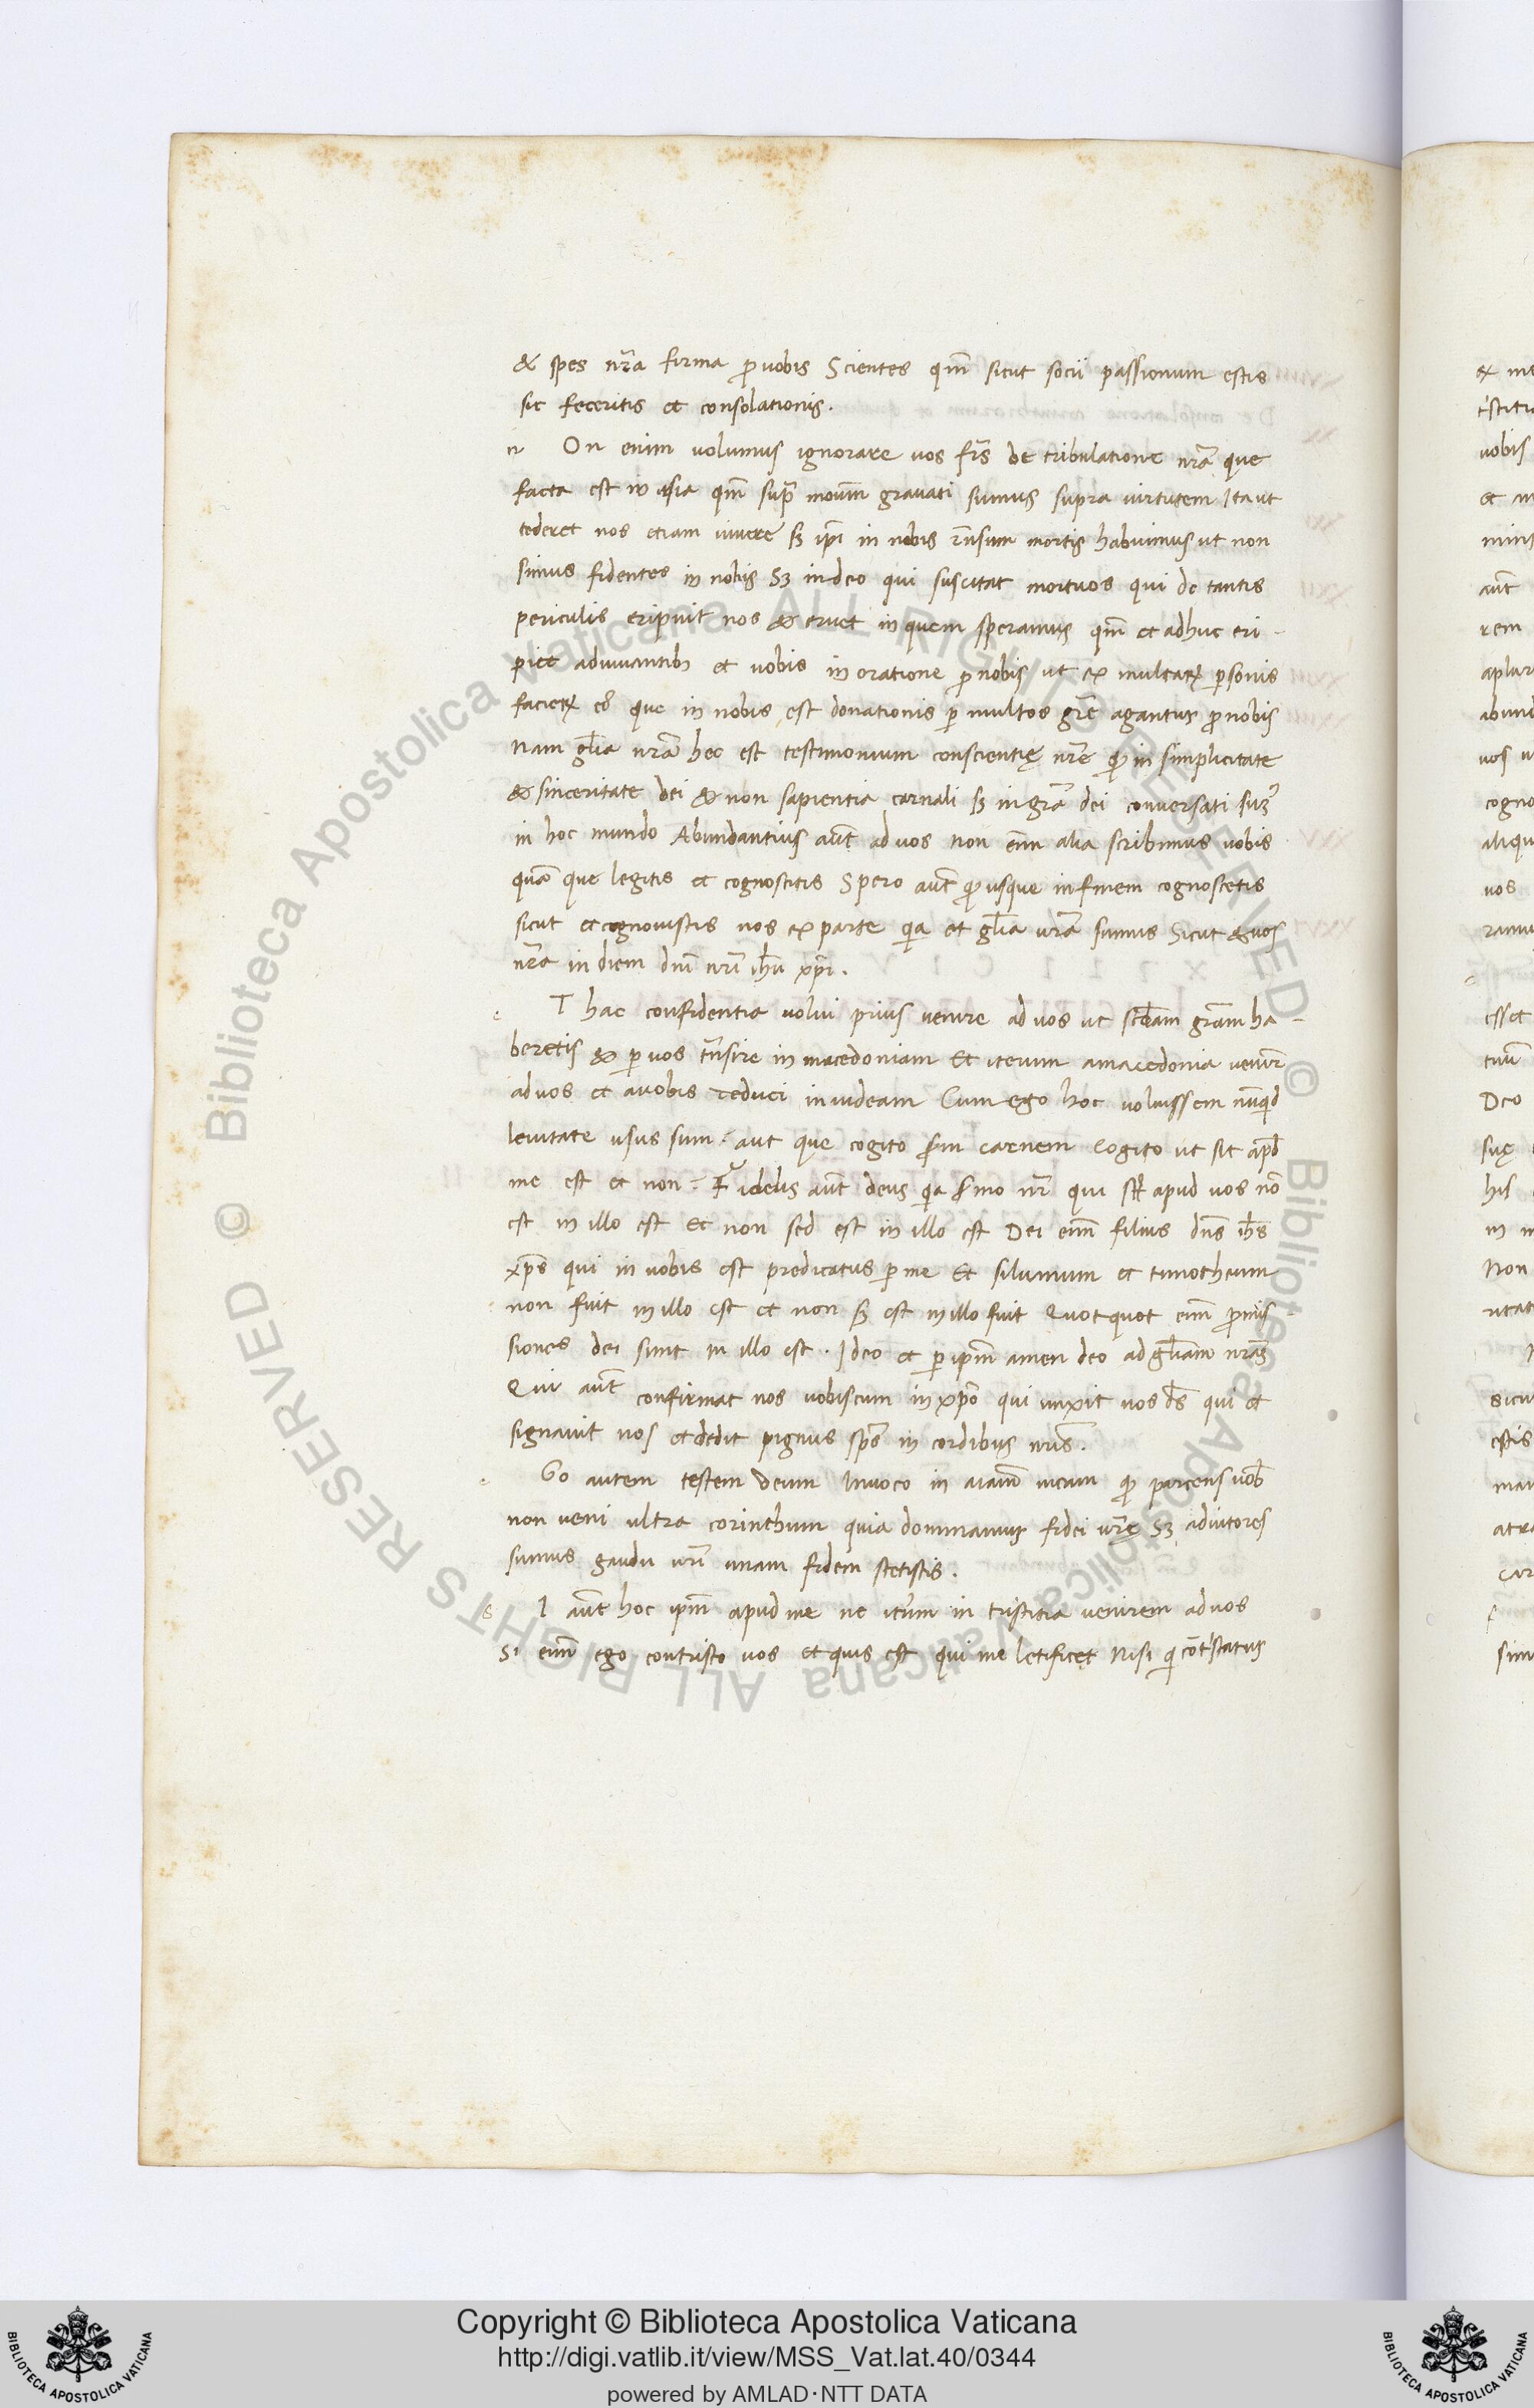 & spes nr̃a firma ꝓ uobis Scientes qm̃ sicut socii passionum estis
sic feceritis et consolationis.
n On enim volumus ignorare uos fr̃s de tribulatione nrã que
facta est in asia qm̃ supra modum grauati sumus supra virtutem Ita ut
tederet nos etiam uiuere sꝫ ip̃i in nobis rñsum mortis habuimus ut non
simus fidentes in nobis Sꝫ in deo qui suscitat mortuos qui de tantis
periculis eripuit nos & eruet in quem speramus qm̃ et adhuc eri-
piet adiuuantibꝫ et uobis in oratione ꝓ nobis ut ex multaꝝ ꝑsonis
facieꝝ que in nobis est donationis ꝑ multos grẽ agantur ꝓ nobis
Nam gl̃ia nrã hec est testimonium conscientię nrẽ ꝙ in simplicitate
& sinceritate dei & non sapientia carnali sꝫ in grã dei conuersati sumꝰ
in hoc mundo Abundantius aut̃ ad uos non em̃ alia scribimus uobis
quã que legitis et cognoscitis Spero aut̃ ꝙ usque in finem cognoscetis
sicut et cognouistis nos ex parte qia et gl̃ia urã sumus Sicut & uos
nr̃a in diem dnĩ nrĩ ih̃u xp̃i.
e T hac confidentia volui prius uenire ad uos ut scd̃am grãm ha-
beretis & ꝑ uos trñsire in macedoniam Et iterum a macedonia uenire
ad uos et a uobis deduci in iudeam Cum ego hoc voluissem nũqid
leuitate usus sum? aut que cogito scðm carnem Cogito ut sit apđ
me est et non? Fidelis aut̃ deus qia sermo nr̃ qui apud uos nõ
est in illo est Et non sed est in illo est Dei em̃ filius dns̃ ih̃s
xp̃s qui in uobis est predicatus ꝑ me Et siluanum et timotheum
non fuit in illo est et non sꝫ est in illo fuit Quotquot em̃ ꝓmis-
siones dei sunt in illo est. Ideo et ꝑ ipm̃ amen deo ad gl̃iam nrãm
Qui aut̃ confirmat nos uobiscum in xp̃o qui unxit nos ds̃ qui et
signauit nos et dedit pignus sp̃s in cordibus nrĩs.
e Go autem testem deum Inuoco in aiãm meam ꝙ parcens uob̃
non veni ultra corinthum quia dominamur fidei urẽ Sꝫ adiutores
sumus gaudii urĩ nam fidem stetistis.
s I aut̃ hoc ipm̃ apud me ne iterum in tristitia uenirem ad uos
Si em̃ ego contristo uos et quis est qui me letificet Nisi q̃ cõtristatus
Copyright © Biblioteca Apostolica Vaticana
http://digi.vatlib.it/view/MSS_Vat.lat.40/0344
powered by AMLAD·NTT DATA